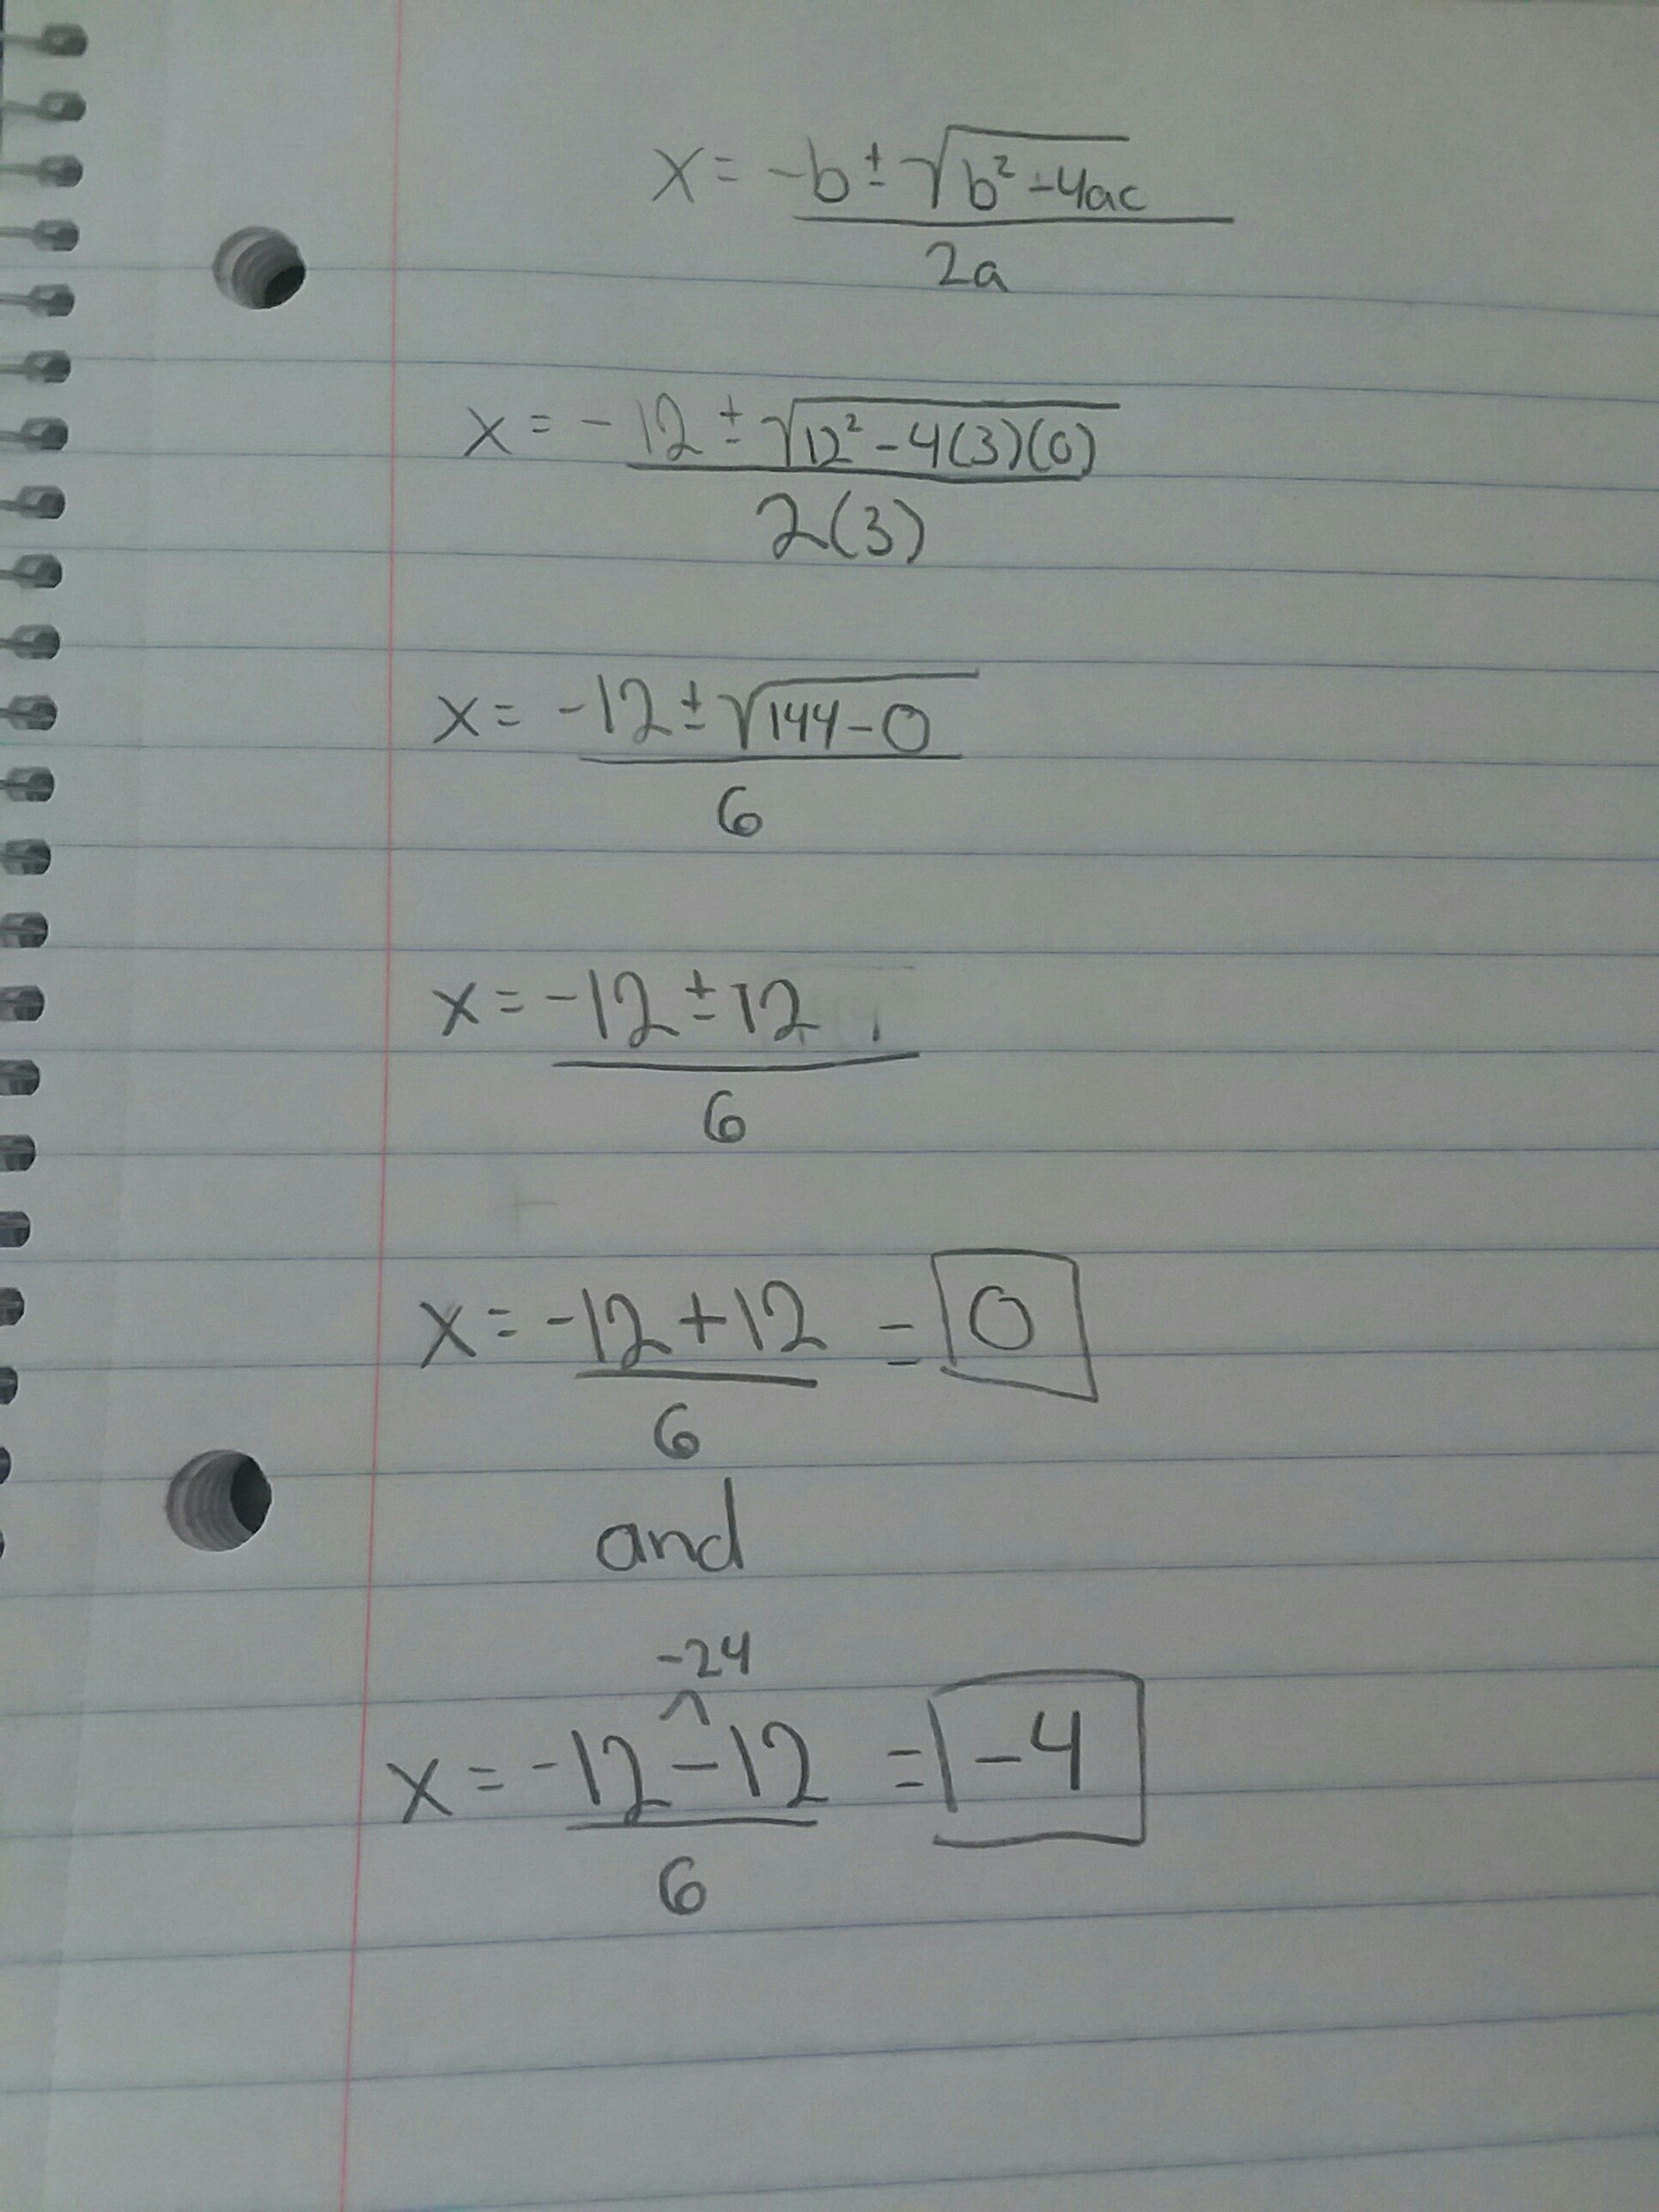 x = -b ± √b² - 4ac
2a
x = -12 ± √12² - 4(3)(0)
2(3)
x = -12 ± √144 - 0
6
x = -12 ± 12
6
x = -12 + 12 = 0
6
and
-24
x = -12 - 12 = -4
6